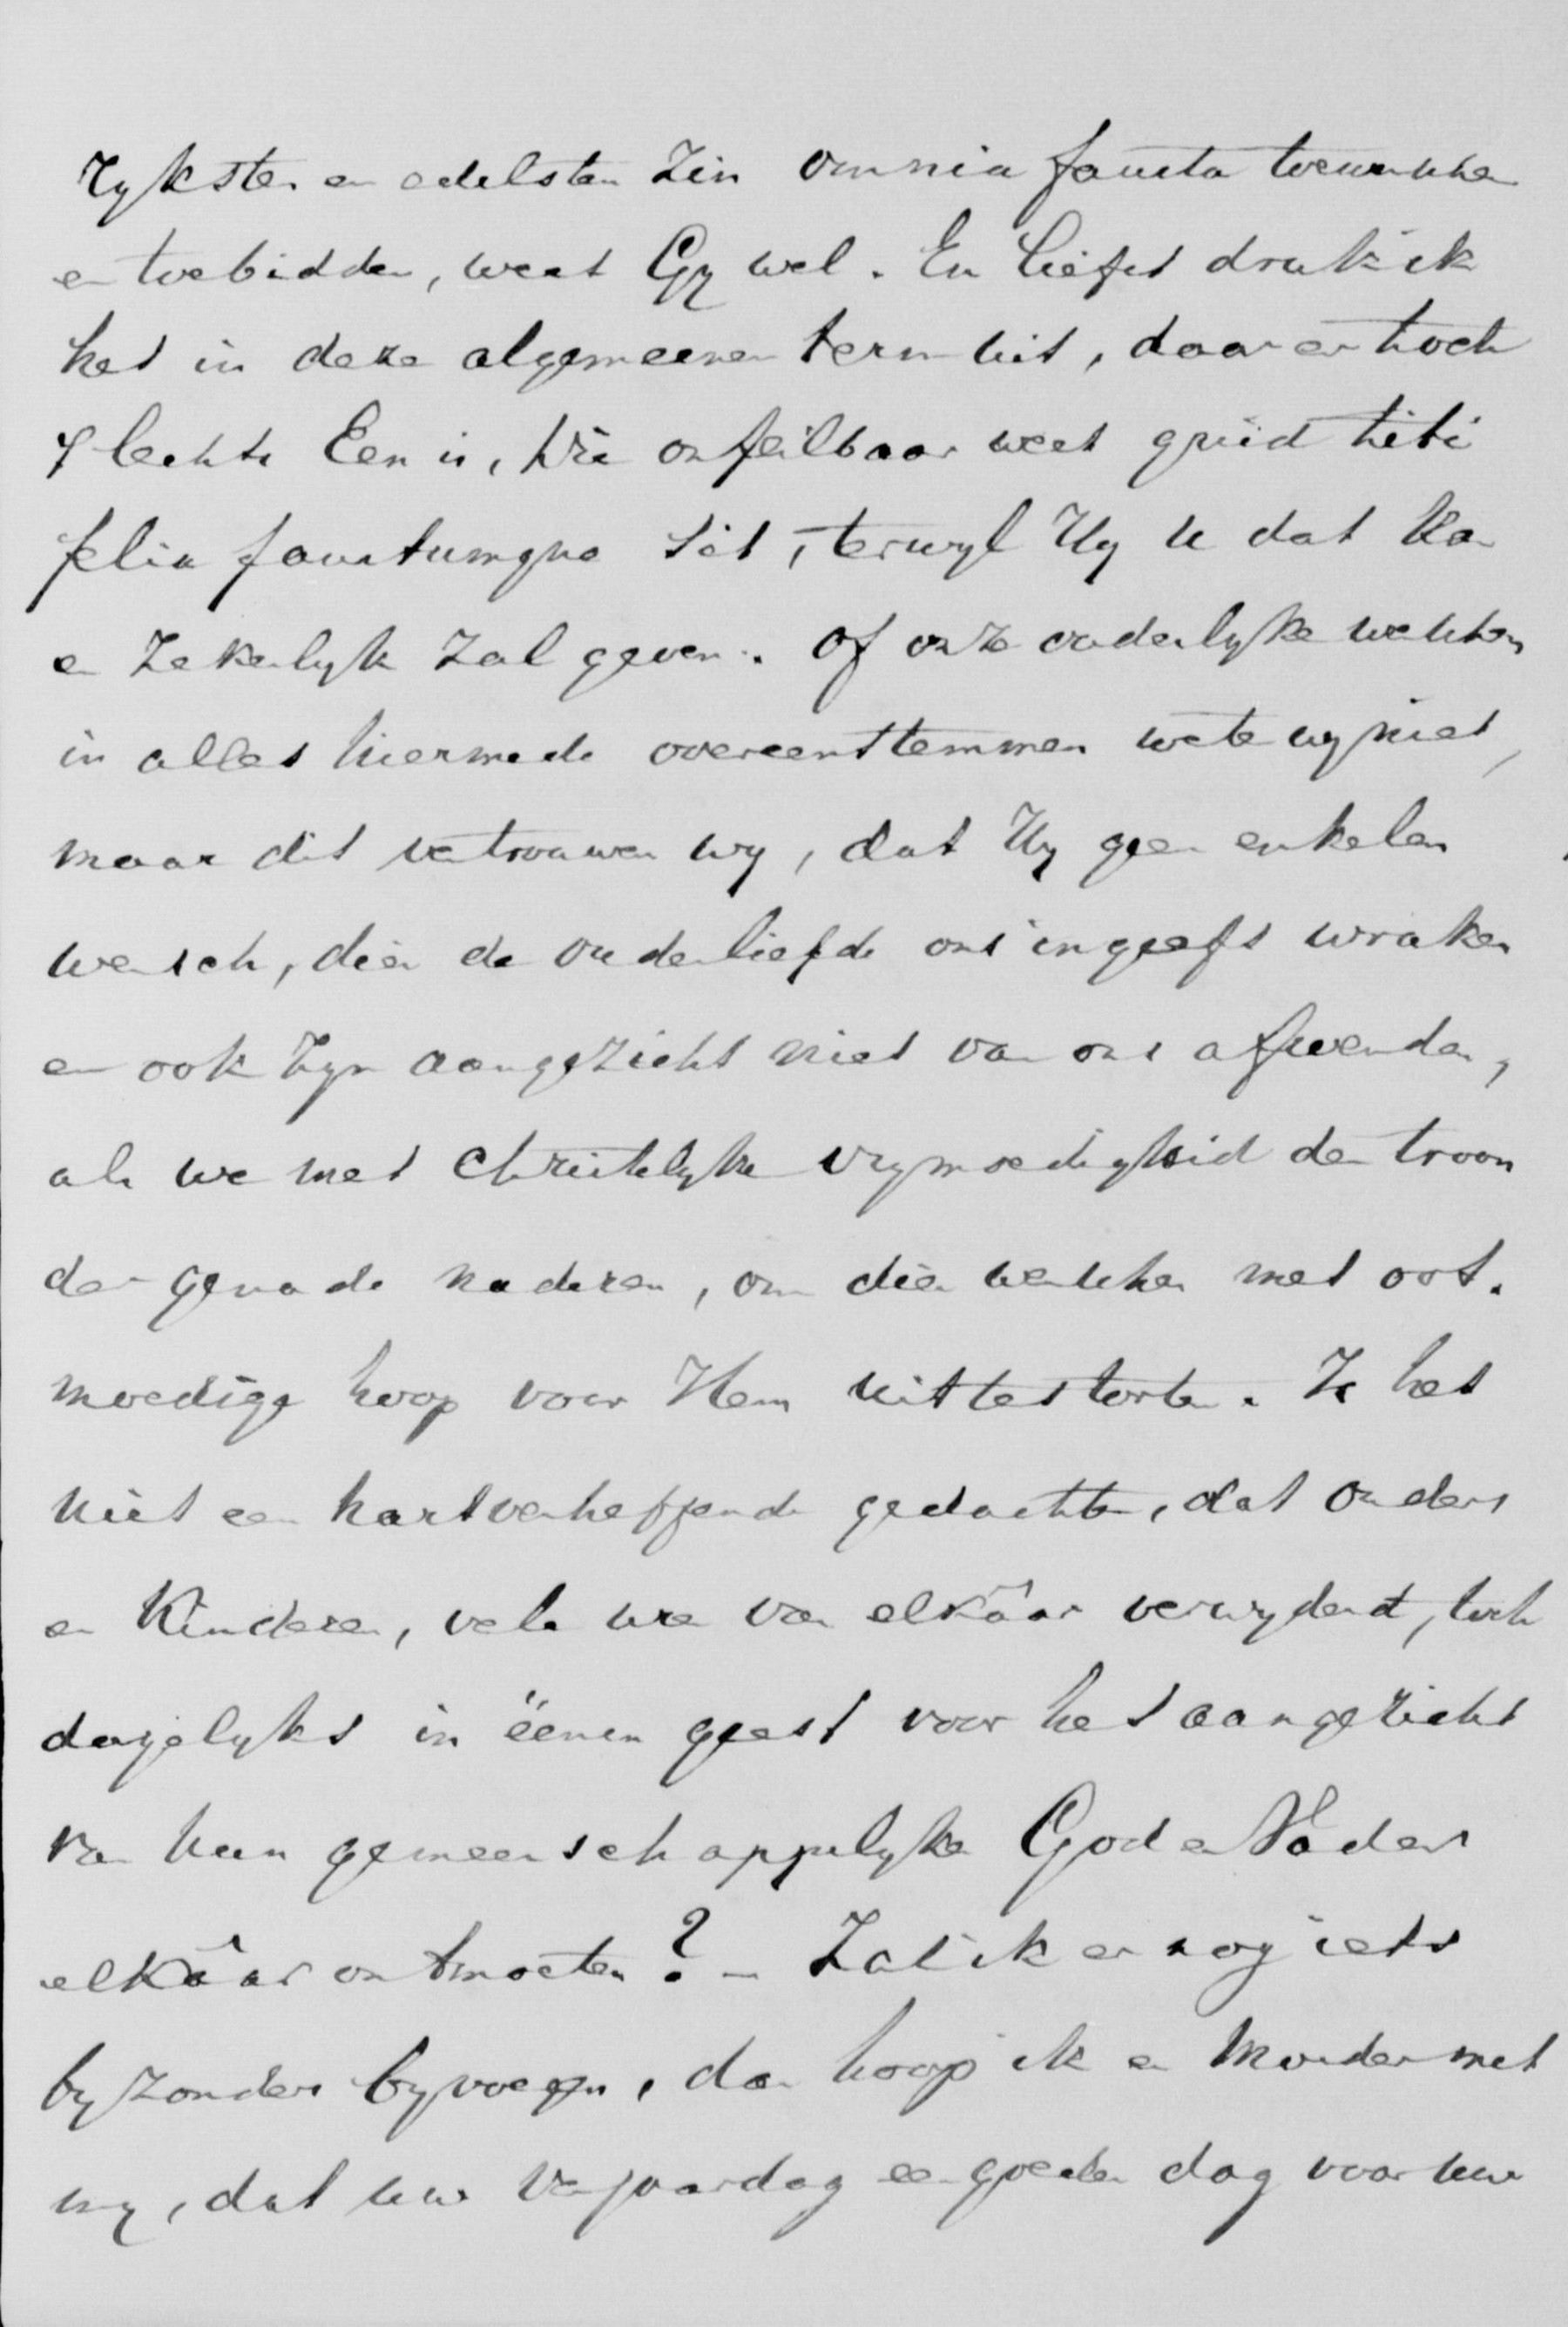 ryksten en edelsten zin omnia fausta toewenschen
en toebidden, weet Gy wel. En liefst druk ik
het in deze algemeenen term uit, daar er toch
slechts Een is, Die onfeilbaar weet quid tibi
felix faustumque sit, terwyl Hy U dat kan
en zekerlyk zal geven. Of onze ouderlyke wenschen
in alles hiermede overeenstemmen weten wy niet,
maar dit vertrouwen wy, dat Hy geen enkelen
wensch, dien de ouderliefde ons ingeeft wraken
en ook Zyn aangezicht niet van ons afwenden,
als we met christelyke vrymoedigheid den troon
der genade naderen, om die wenschen met oot.
moedige hoop voor Hem uittestorten. Is het
niet een hartverheffende gedachte, dat ouders
en kinderen, vele uren van elkâar verwyderd, toch
dagelyks in éénen geest voor het aangezicht
van hun gemeenschappelyken God en Vader
elkâar ontmoeten? - Zal ik er nog iets
byzonders byvoegen, dan hoop ik en Moeder met
my, dat uw Verjaardag een goeden dag voor uw